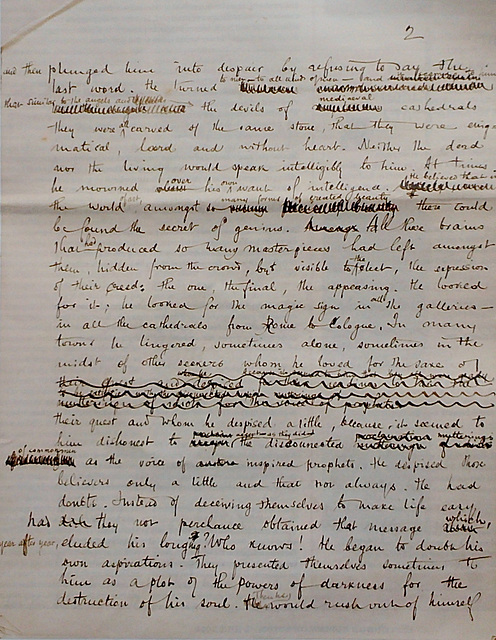 2
and then plunged him into despair by refusing to say the
last word. He turned to men — to all kinds of men — and
that similar to the angels and the devils of medieval cathedrals
they were carved of the same stone, that they were enig
matical, hard and without heart. Neither the dead
nor the living would speak intelligibly to him. At times
he mourned over his own want of intelligence. He believed that in
the world amongst so many forms of created beauty there could
be found the secret of genius. All these brains
that had produced so many masterpieces had left amongst
them, hidden from the crowd, but visible to the elect, the expression
of their creed: the one, the final, the appeasing. He looked
for it; he looked for the magic sign in all the galleries —
in all the cathedrals from Rome to Cologne. In many
towns he lingered, sometimes alone, sometimes in the
midst of other seekers whom he loved for the sake of
their quest and whom he despised a little, because it seemed to
him dishonest to the disconnected mutterings
of common men as the voice of inspired prophets. He despised those
believers only a little and that not always. He had
doubts. Instead of deceiving themselves to make life easy
had they not perchance obtained that message which,
year after year, eluded his longing? Who knows! He began to doubt his
own aspirations. They presented themselves sometimes to
him as a plot of the powers of darkness for the
destruction of his soul. Then he would rush out of himself